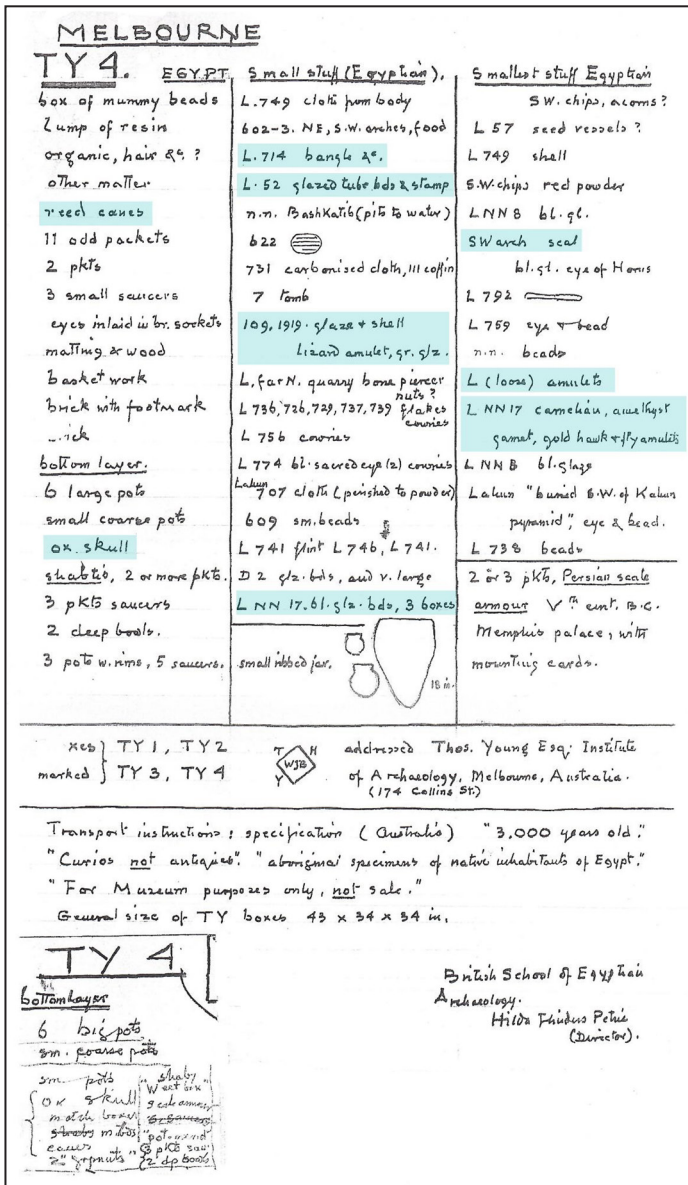 MELBOURNE
TY 4.
EGYPT
box of mummy beads
Lump of resin
organic, hair &c. ?
other matter
reed canes
11 odd packets
2 pkts
3 small saucers
eyes inlaid in br. sockets
matting & wood
basket work
brick with footmark
bottom layer.
6 large pots
small coarse pots
ox. skull
shabtis, 2 or more pkts.
3 pkts saucers
2 deep bowls.
3 pots w. rims, 5 saucers.
Small stuff (Egyptian).
L.749 cloth from body
602-3. NE, S.W. arches, food
L.714 bangle &c.
L.52 glazed tube bds & stamp
n.n. Bashkatib (pits to water)
622
731 carbonised cloth, 111 coffin
7 tomb
109, 1919. glaze & shell
Lizard amulet, gr. glz.
L, far N. quarry bone piercer
nuts ?
L 736, 726, 729, 737, 739 flakes
cowries
L 756 cowries
L 774 bl. sacred eye (2) cowries
Lahun 707 cloth (perished to powder)
609 sm. beads
L 741 flint L 746, L 741.
D 2 glz. bds, and v. large
L NN 17. bl. glz. bds, 3 boxes
small ribbed jar.
18 in.
Smallest stuff Egyptian
S.W. chips, acorns ?
L 57 seed vessels ?
L 749 shell
S.W. chips red powder
LNN 8 bl. gl.
SW arch seal
bl. gl. eye of Horus
L 792
L 759 eye & bead
n.n. beads
L (loose) amulets
L NN17 carnelian, amethyst
garnet, gold hawk & fly amulets
L NN B bl. glaze
Lahun "buried S.W. of Kahun
pyramid", eye & bead.
L 738 beads
2 or 3 pkts, Persian scale
armour Vth cent. B.C.
Memphis palace, with
mounting cards.
xes } TY 1, TY 2
marked } TY 3, TY 4
T H
WJB
Y
addressed Thos. Young Esq. Institute
of Archaeology, Melbourne, Australia.
(174 Collins St.)
Transport instructions : specification (Australia) "3,000 years old."
"Curios not antiques". "aboriginal specimens of native inhabitants of Egypt."
"For Museum purposes only, not sale."
General size of TY boxes 43 x 34 x 34 in.
British School of Egyptian
Archaeology.
Hilda Flinders Petrie
(Director).
TY 4
bottom layer
6 big pots
sm. coarse pots
sm. pots
ox skull
match boxes